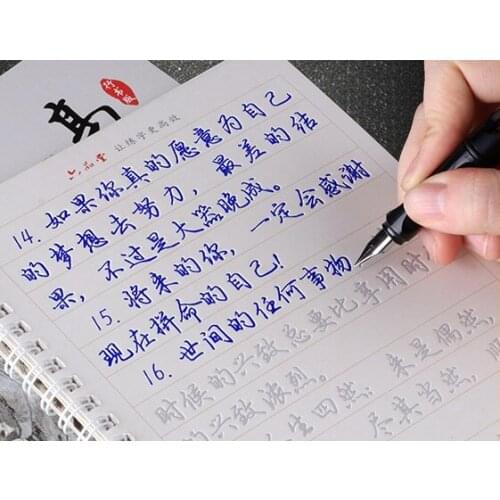 行书版
六品堂 让练字更高效
14. 如果你真的愿意为自己
的梦想去努力， 最差的结
果， 不过是大器晚成。
15. 将来的你， 一定会感谢
现在拼命的自己！
16. 世间的任何事物，
时候的兴致总要比享用时
的兴致浓烈。
来是偶然，
尽其当然，